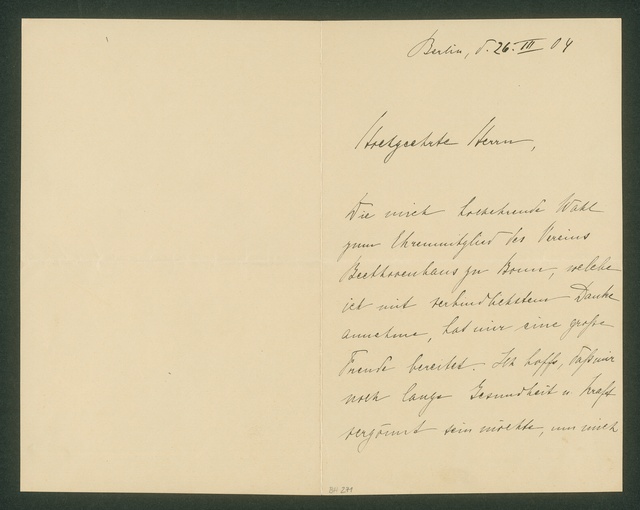 Berlin, d. 26. III 04
Hochgeehrte Herrn,
Die mich hochehrende Wahl
zum Ehrenmitglied des Vereins
Beethovenhaus zu Bonn, welche
ich mit verbindlichstem Danke
annehme, hat mir eine große
Freude bereitet. Ich hoffe, daß mir
noch lange Gesundheit u. Kraft
vergönnt sein möchte, um mich
BH 271